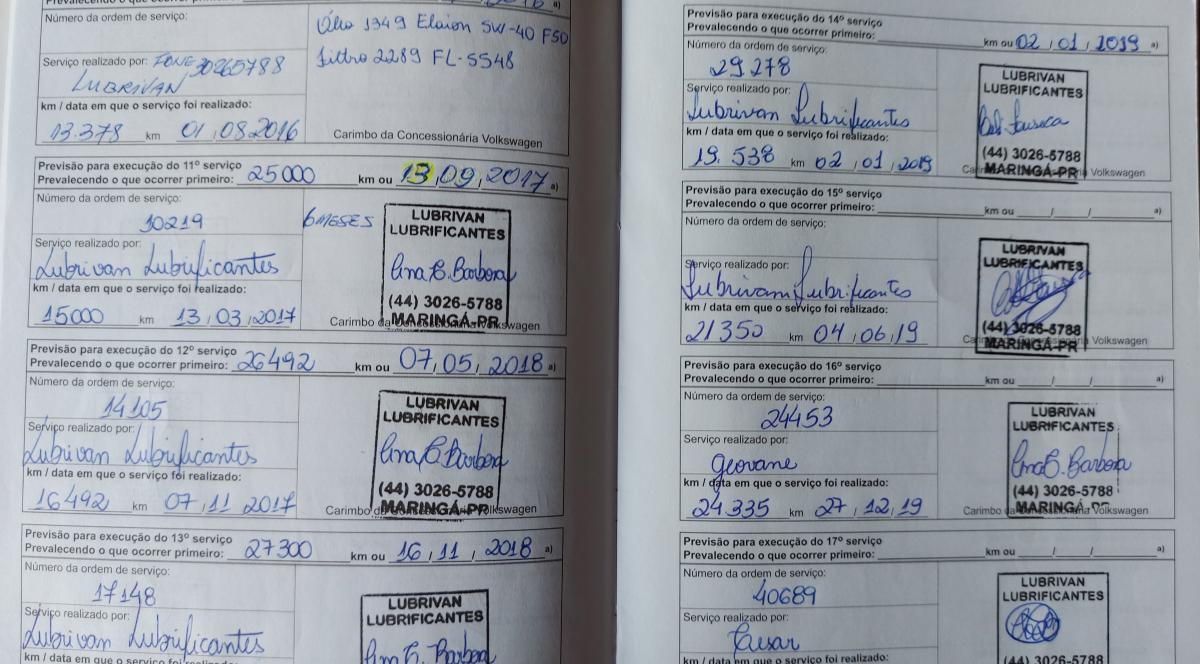 Número da ordem de serviço:
Óleo 1349 Elaion 5W-40 F50
Filtro 2289 FL-5548
Serviço realizado por: FONE 30265788
LUBRIVAN
km / data em que o serviço foi realizado:
13.378 km 01/08/2016
Carimbo da Concessionária Volkswagen
Previsão para execução do 11º serviço
Prevalecendo o que ocorrer primeiro: 25000 km ou 13/09/2017 a)
Número da ordem de serviço:
10219
6 MESES
Serviço realizado por:
Lubrivan Lubrificantes
km / data em que o serviço foi realizado:
15000 km 13/03/2017
LUBRIVAN
LUBRIFICANTES
Ana C. Barbosa
(44) 3026-5788
MARINGÁ-PR
Carimbo da Concessionária Volkswagen
Previsão para execução do 12º serviço
Prevalecendo o que ocorrer primeiro: 26492 km ou 07/05/2018 a)
Número da ordem de serviço:
14105
Serviço realizado por:
Lubrivan Lubrificantes
km / data em que o serviço foi realizado
16492 km 07/11/2017
LUBRIVAN
LUBRIFICANTES
Ana C. Barbosa
(44) 3026-5788
MARINGÁ-PR
Carimbo da Concessionária Volkswagen
Previsão para execução do 13º serviço
Prevalecendo o que ocorrer primeiro: 27300 km ou 16/11/2018 a)
Número da ordem de serviço:
17148
Serviço realizado por:
Lubrivan Lubrificantes
km / data em que o serviço foi realizado
LUBRIVAN
LUBRIFICANTES
Ana C. Barbosa
Previsão para execução do 14º serviço
Prevalecendo o que ocorrer primeiro: km ou 02/01/2019 a)
Número da ordem de serviço:
29278
Serviço realizado por:
Lubrivan Lubrificantes
km / data em que o serviço foi realizado:
19.538 km 02/01/2019
LUBRIVAN
LUBRIFICANTES
Fonseca
(44) 3026-5788
MARINGÁ-PR
Carimbo da Concessionária Volkswagen
Previsão para execução do 15º serviço
Prevalecendo o que ocorrer primeiro: km ou / / a)
Número da ordem de serviço:
Serviço realizado por:
Lubrivan Lubrificantes
km / data em que o serviço foi realizado:
21350 km 04/06/19
LUBRIVAN
LUBRIFICANTES
(44) 3026-5788
MARINGÁ-PR
Carimbo da Concessionária Volkswagen
Previsão para execução do 16º serviço
Prevalecendo o que ocorrer primeiro: km ou / / a)
Número da ordem de serviço:
24453
Serviço realizado por:
Geovane
km / data em que o serviço foi realizado:
24335 km 27/12/19
LUBRIVAN
LUBRIFICANTES
Ana C. Barbosa
(44) 3026-5788
MARINGÁ-PR
Carimbo da Concessionária Volkswagen
Previsão para execução do 17º serviço
Prevalecendo o que ocorrer primeiro: km ou / / a)
Número da ordem de serviço:
40689
Serviço realizado por:
Cesar
km / data em que o serviço foi realizado:
LUBRIVAN
LUBRIFICANTES